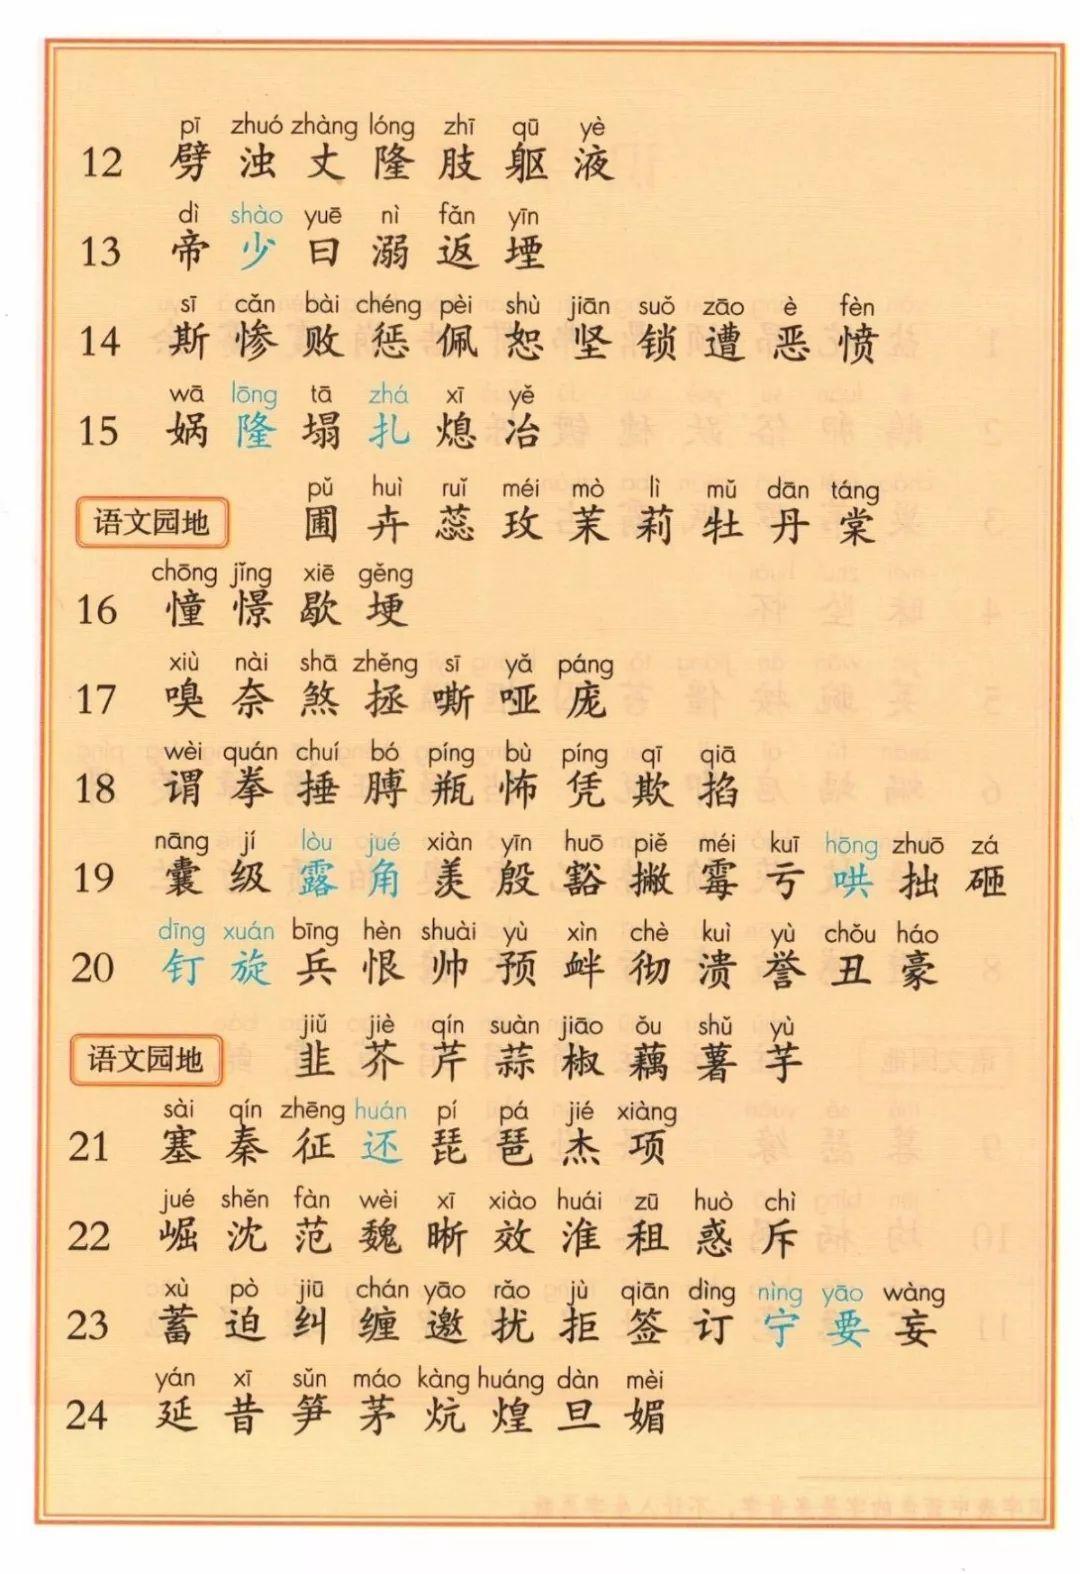 pī zhuó zhàng lóng zhī qū yè
12 劈 浊 丈 隆 肢 躯 液
dì shào yuē nì fǎn yīn
13 帝 少 曰 溺 返 堙
sī cǎn bài chéng pèi shù jiān suǒ zāo è fèn
14 斯 惨 败 惩 佩 恕 坚 锁 遭 恶 愤
wā lōng tā zhá xī yě
15 娲 隆 塌 扎 熄 冶
pǔ huì ruǐ méi mò lì mǔ dān táng
语文园地 圃 卉 蕊 玫 茉 莉 牡 丹 棠
chōng jǐng xiē gěng
16 憧 憬 歇 埂
xiù nài shā zhěng sī yǎ páng
17 嗅 奈 煞 拯 嘶 哑 庞
wèi quán chuí bó píng bù píng qī qiā
18 谓 拳 捶 膊 瓶 怖 凭 欺 掐
nāng jí lòu jué xiàn yīn huō piě méi kuī hōng zhuō zá
19 囊 级 露 角 羡 殷 豁 撇 霉 亏 哄 拙 砸
dīng xuán bīng hèn shuài yù xìn chè kuì yù chǒu háo
20 钉 旋 兵 恨 帅 预 衅 彻 溃 誉 丑 豪
jiǔ jiè qín suàn jiāo ǒu shǔ yù
语文园地 韭 芥 芹 蒜 椒 藕 薯 芋
sài qín zhēng huán pí pá jié xiàng
21 塞 秦 征 还 琵 琶 杰 项
jué shěn fàn wèi xī xiào huái zū huò chì
22 崛 沈 范 魏 晰 效 淮 租 惑 斥
xù pò jiū chán yāo rǎo jù qiān dìng nìng yāo wàng
23 蓄 迫 纠 缠 邀 扰 拒 签 订 宁 要 妄
yán xī sǔn máo kàng huáng dàn mèi
24 延 昔 笋 茅 炕 煌 旦 媚